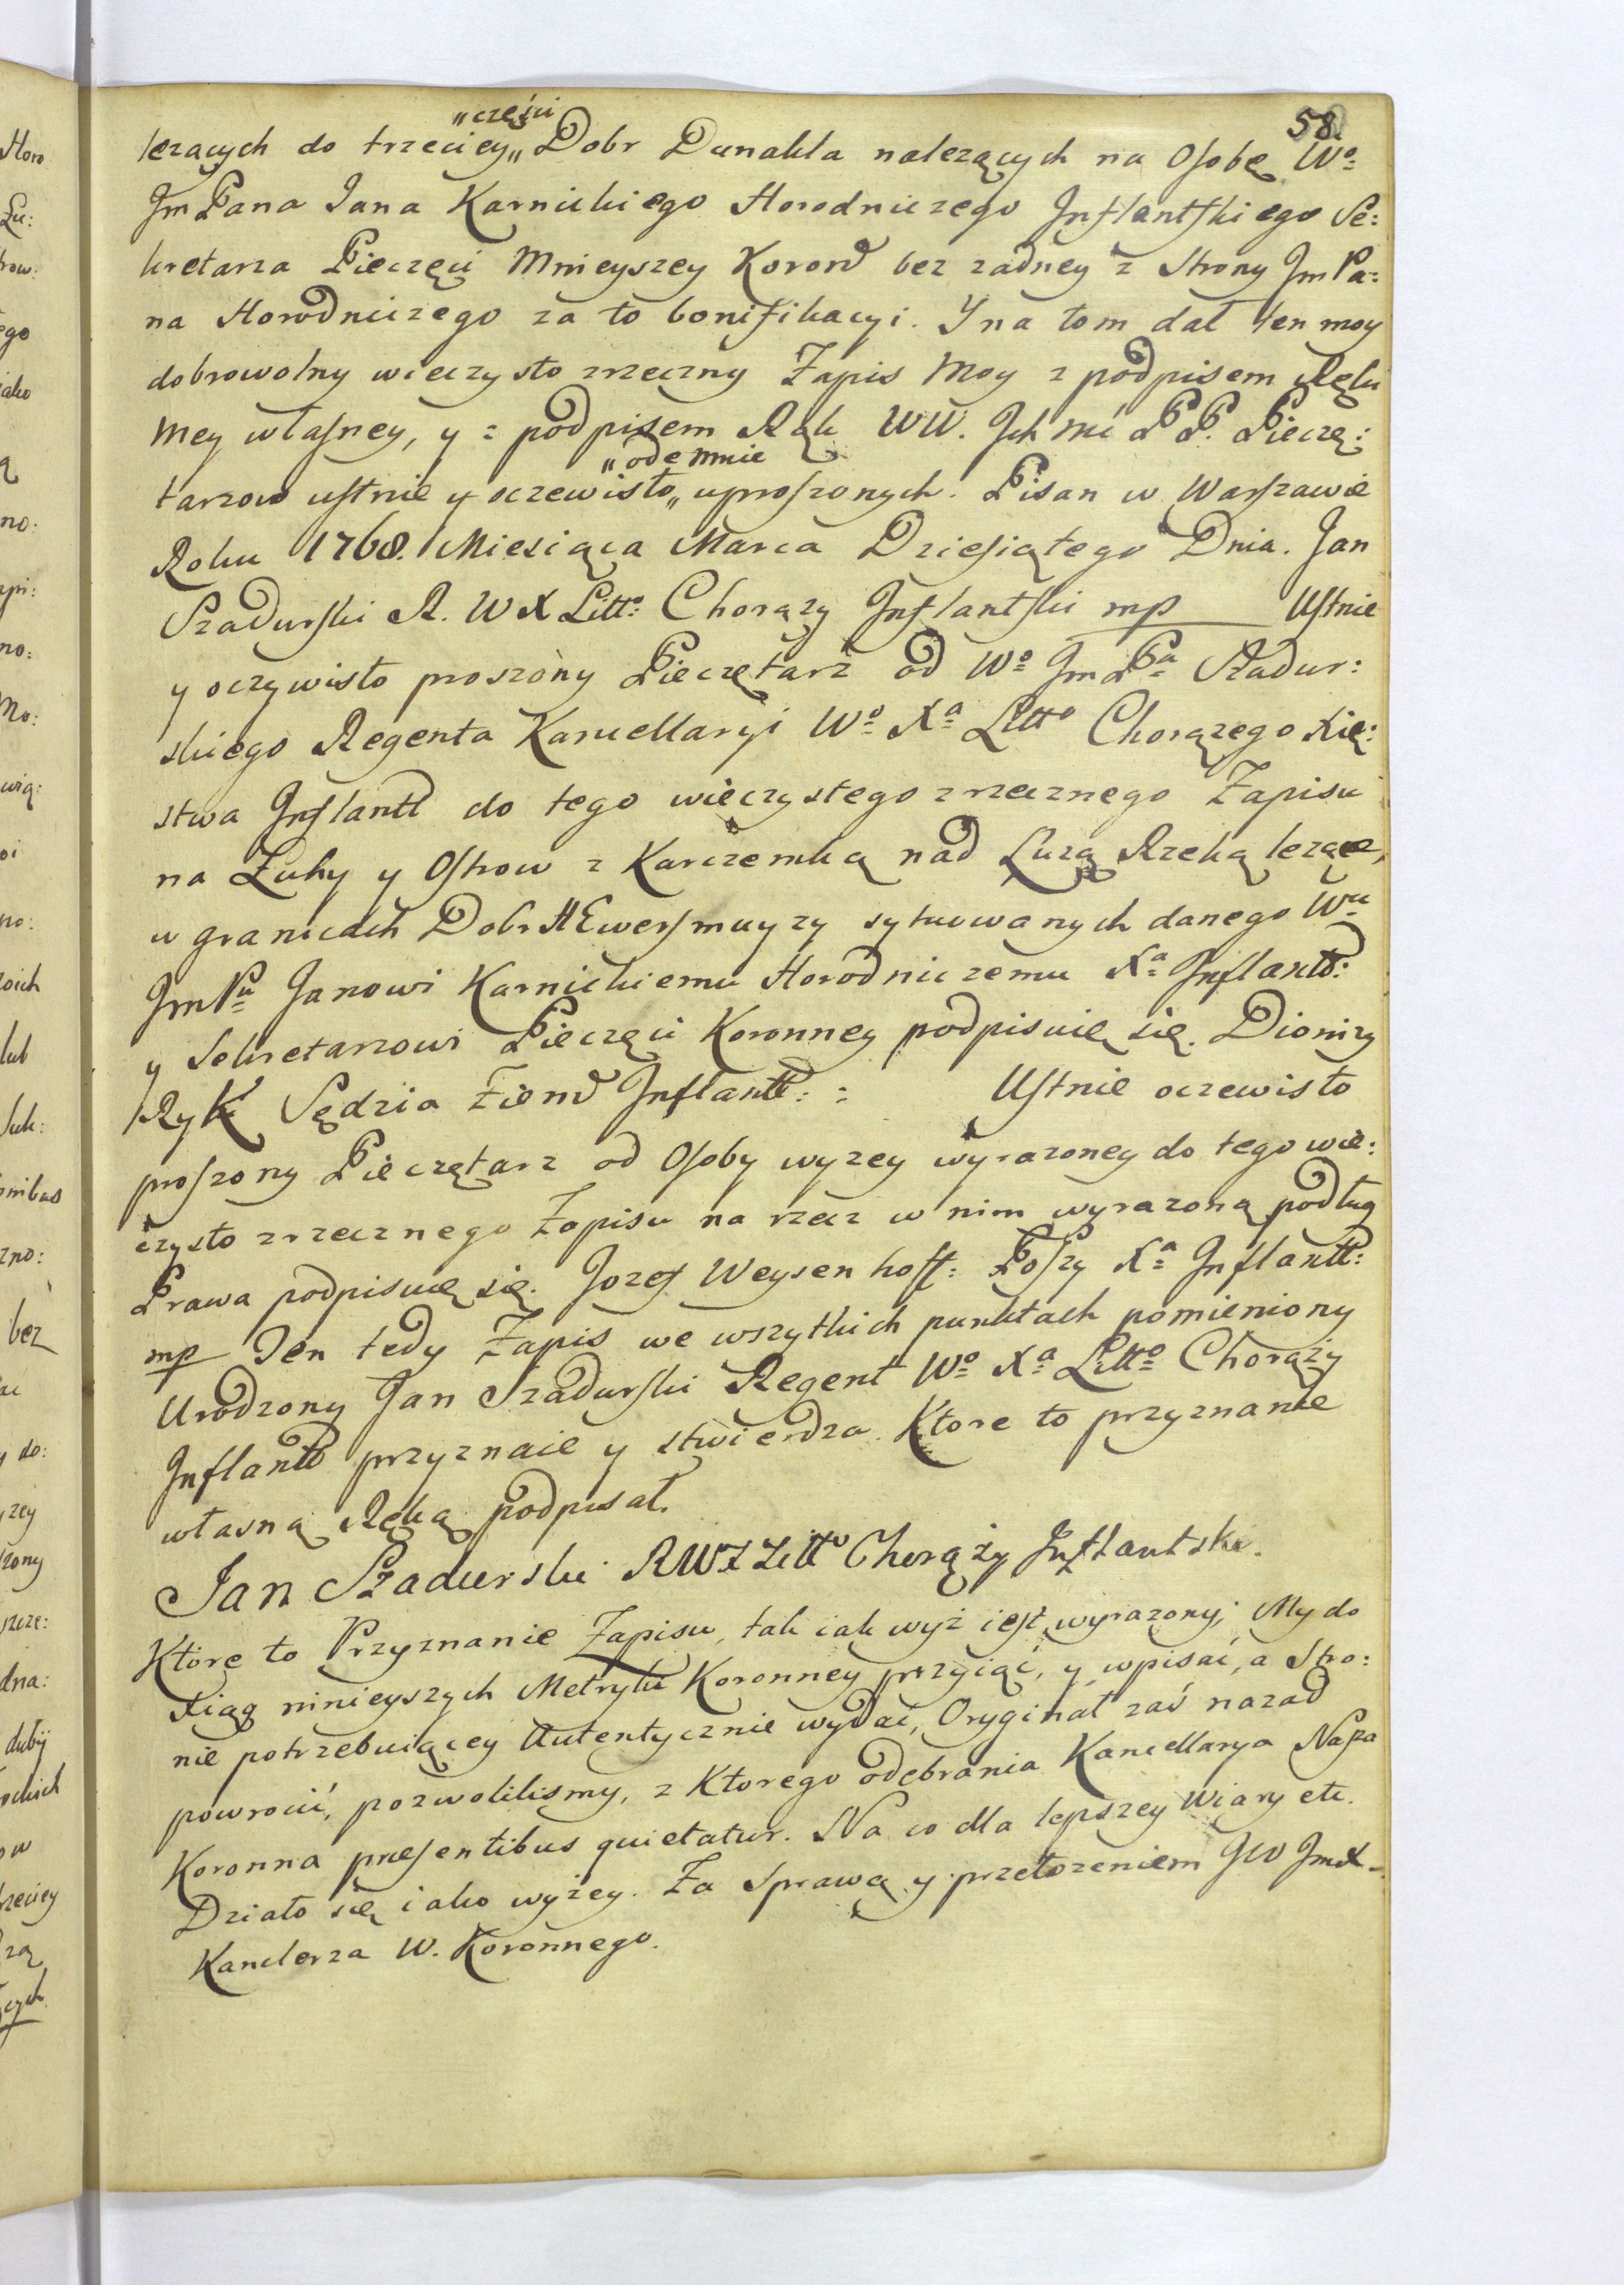 58.
leżących do trzeciey „części„ Dobr Dunakla należących na Osobę Wo
Jm Pana Jana Karnickiego Horodniczego Inflantskiego Se:
kretarza Pieczęci Mnieyszey Koron bez żadney z Strony Jm Pa:
na Horodniczego za to bonifikacyi. Y na tom dał ten moy
dobrowolny wieczysto zrzeczny Zapis Moy z podpisem Ręki
mey własney, y z podpisem Rąk WW. Ich Mć PP. Pieczę:
tarzow ustnie y oczewisto „odemnie„ uproszonych. Pisan w Warszawie
Roku 1768. Miesiąca Marca Dziesiątego Dnia. Jan
Szadurski R. W X Litto Chorąży Inflantski mp Ustnie
y oczywisto proszony Pieczętarz od Wo Jm Pa Szadur:
skiego Regenta Kancellaryi Wo Xa Litto Chorążego Xię:
stwa Inflantt do tego wieczystego zrzecznego Zapisu
na Łuhy y Ostrow z Karczemką nad Łuzą Rzeką leżące,
w granicach Dobr Ewersmuyzy sytuowanych danego Wu
Jm Pu Janowi Karnickiemu Horodniczemu Xa Inflantt:
y Sekretarzowi Pieczęci Koronney podpisuię się. Dionizy
Ryk Sędzia Ziem Inflantt: : Ustnie oczewisto
proszony Pieczętarz od Osoby wyżey wyrażoney do tego wie:
czysto zrzecznego Zapisu na rzecz w nim wyrażoną podług
Prawa podpisuię się. Jozef Weysenhoff: Poszy Xa Inflantt:
mp Ten tedy Zapis we wszytkich punktach pomieniony
Urodzony Jan Szadurski Regent Wo Xa Litto Chorąży
Inflantt przyznaie y stwierdza. Ktore to przyznanie
własną Ręką podpisał.
Jan Szadurski RWX Litto Chorąży Inflantski.
Ktore to Przyznanie Zapisu, tak iak wyż iest wyrażony; My do
Xiąg ninieyszych Metryki Koronney przyiąć, y wpisać, a Stro:
nie potrzebuiącey Autentycznie wydać, Oryginał zaś nazad
powrocić, pozwolilismy, z Ktorego odebrania Kancellarya Nasza
Koronna præsentibus quietatur. Na co dla lepszey Wiary etc.
Działo się iako wyżey. Za Sprawą y przełożeniem JW Jm X
Kanclerza W. Koronnego.